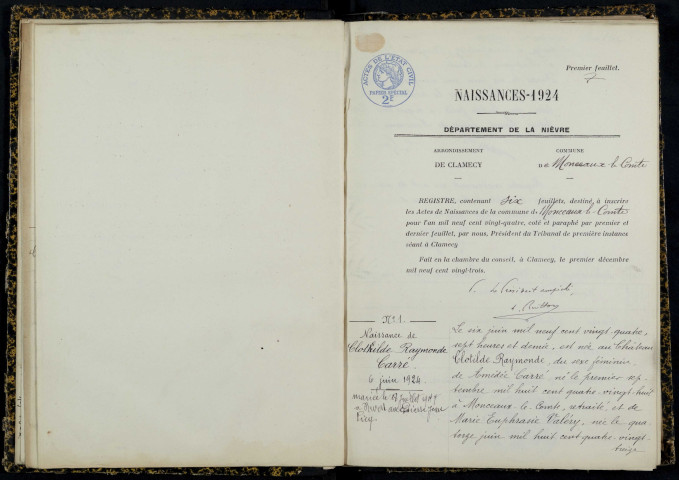 Premier feuillet.
ACTES DE L'ÉTAT CIVIL
PAPIER SPÉCIAL
2F
NAISSANCES-1924
DÉPARTEMENT DE LA NIÈVRE
ARRONDISSEMENT
DE CLAMECY
COMMUNE
DE Monceaux-le-Comte
REGISTRE, contenant Six feuillets, destiné à inscrire
les Actes de Naissances de la commune de Monceaux-le-Comte
pour l'an mil neuf cent vingt-quatre, coté et paraphé par premier et
dernier feuillet, par nous, Président du Tribunal de première instance
séant à Clamecy
Fait en la chambre du conseil, à Clamecy, le premier décembre
mil neuf cent vingt-trois.
Le Président
N° 1.
Naissance de
Clothilde Raymonde
Carré
6 juin 1924.
mariée le Juillet
à avec Pierre
Le six juin mil neuf cent vingt-quatre,
sept heures et demie, est née au Château
Clotilde Raymonde, du sexe féminin
de Amédée Carré né le premier sep-
tembre mil huit cent quatre-vingt-huit
à Monceaux-le-Comte, retraité, et de
Marie Euphrasie Valéry, née le qua-
torze juin mil huit cent quatre-vingt-
treize